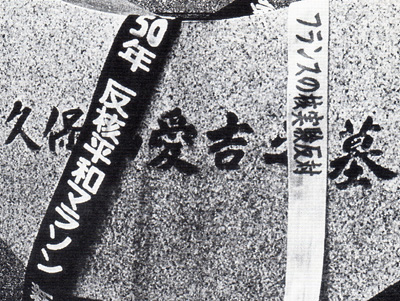 50年 反核平和マラソン
フランスの核実験反対
久保 愛吉 墓